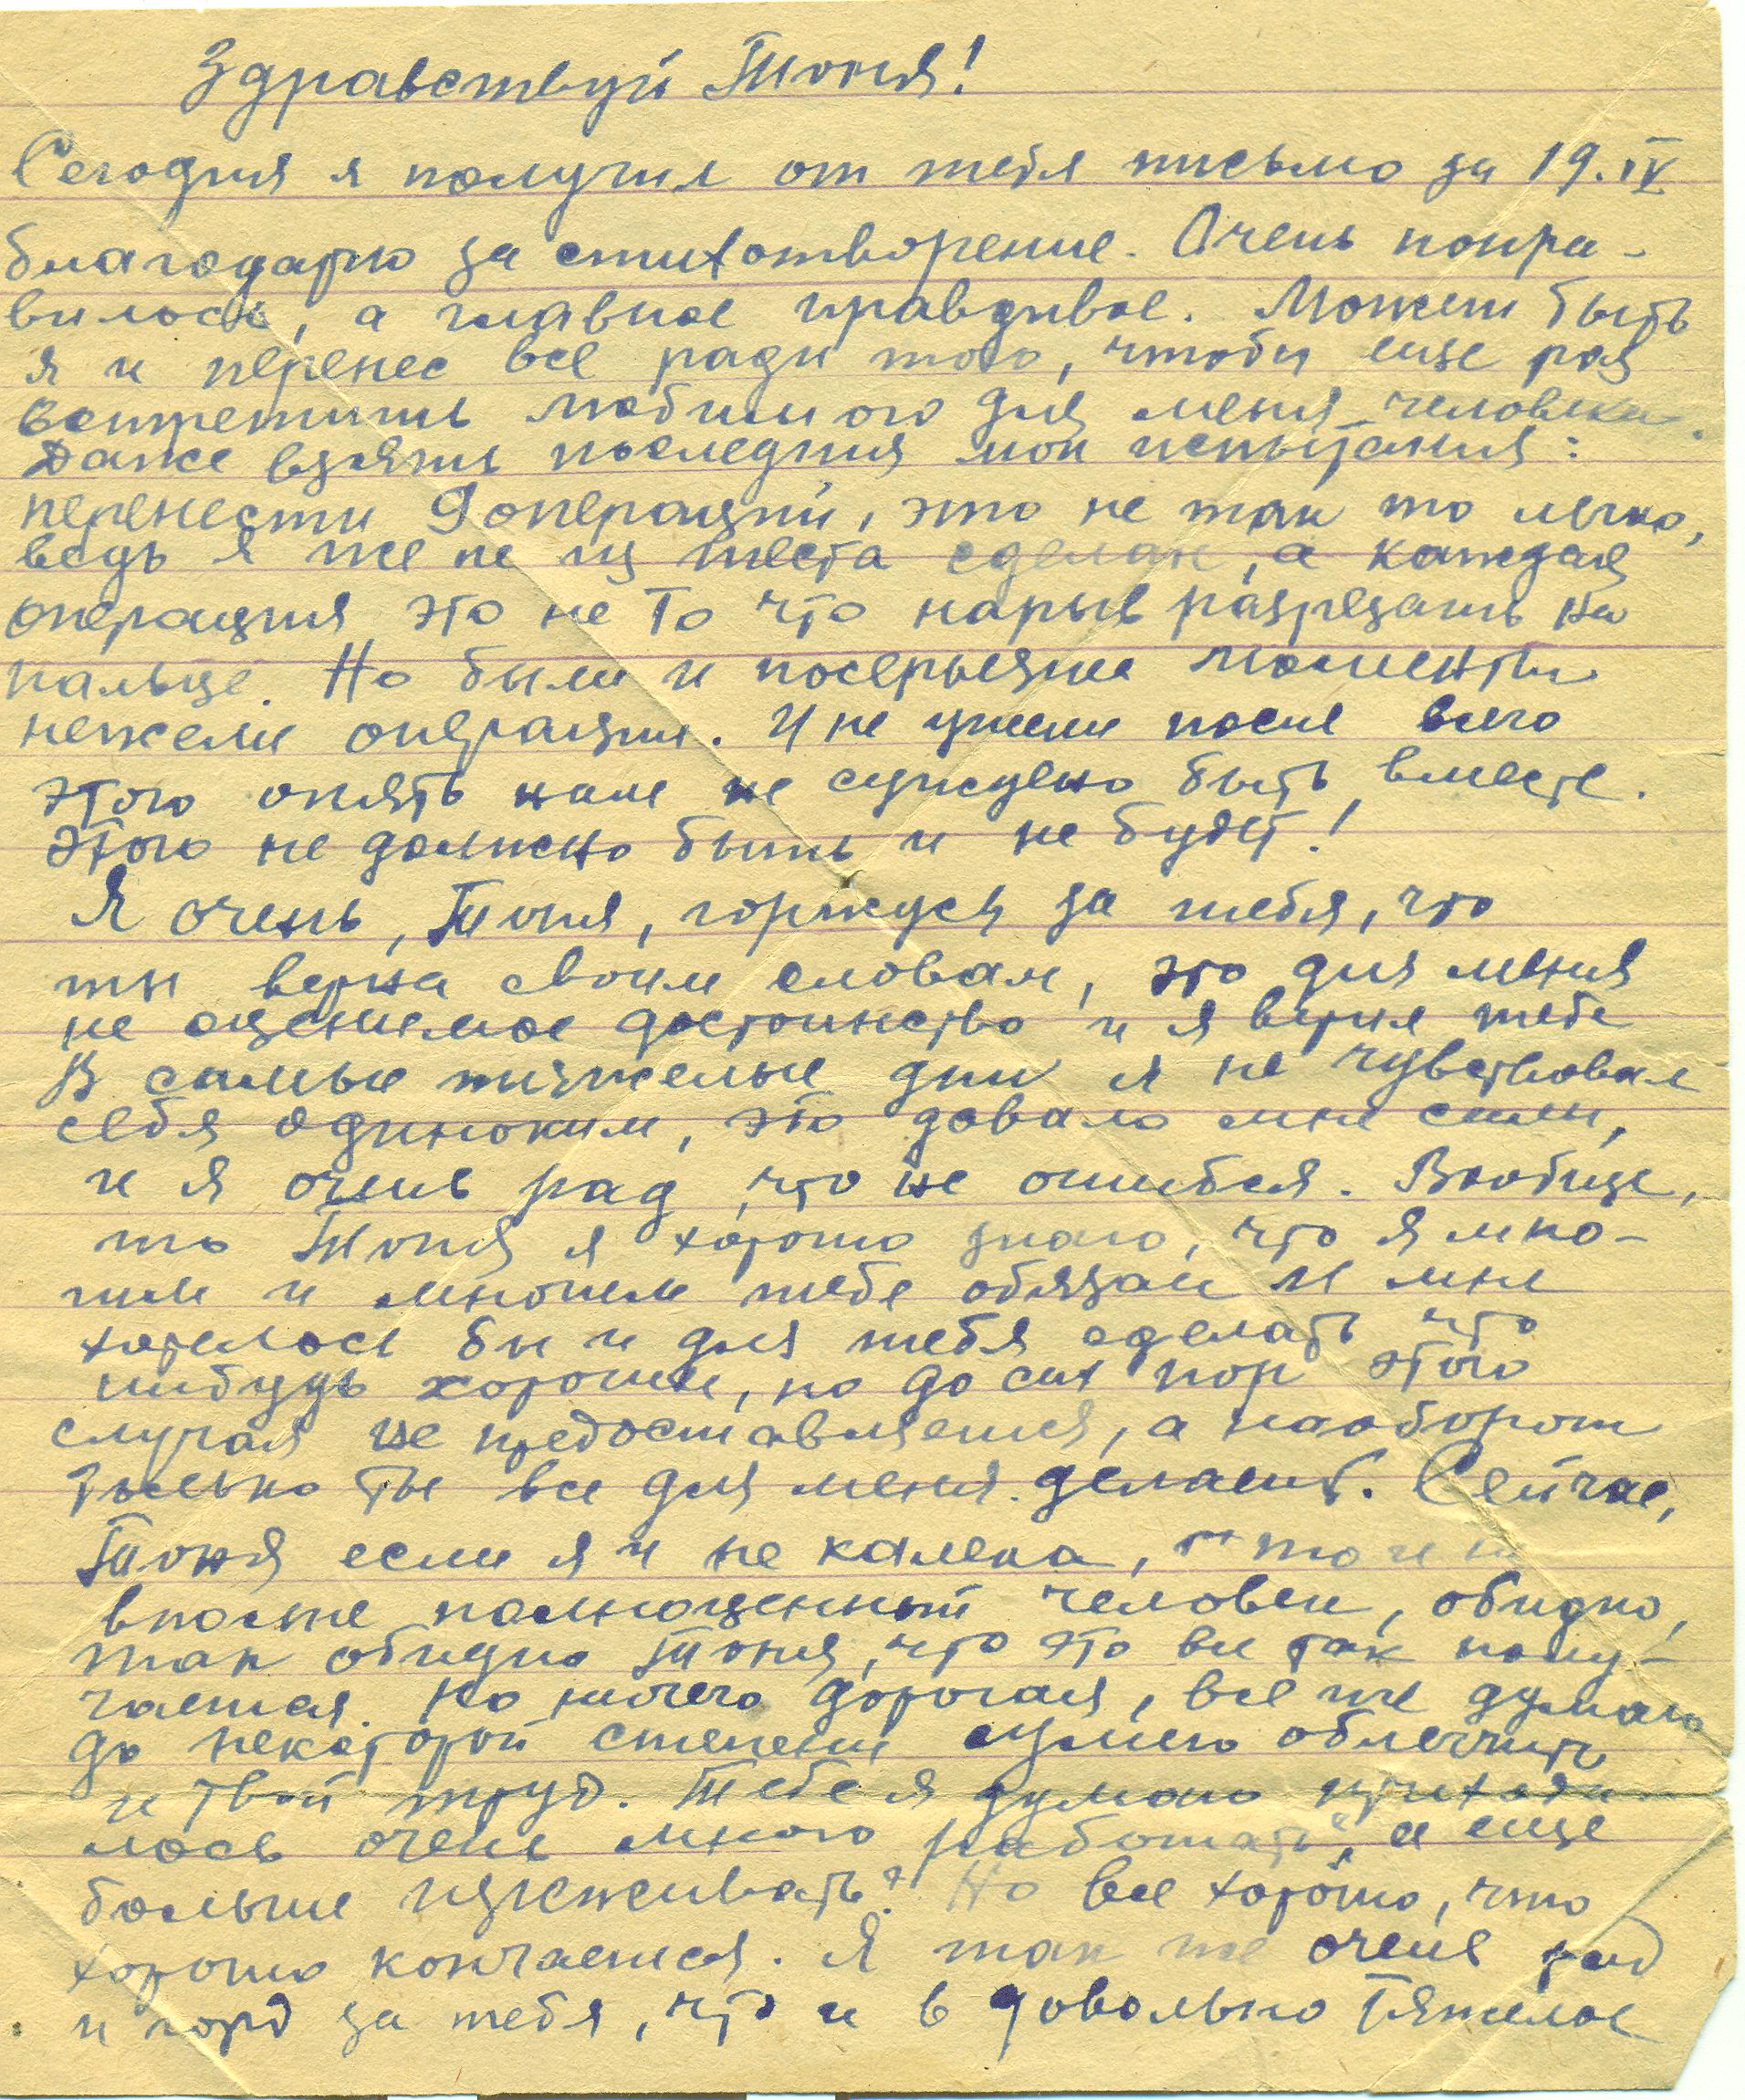 Здравствуй Тоня!
Сегодня я получил от тебя письмо за 19.IV
благодарю за стихотворение. Очень понра-
вилось, а главное правдивое. Может быть
я и перенес все ради того, чтобы еще раз
встретить любимого для меня человека.
Даже взять последния мои испытания:
перенести 9 операций, это не так то легко,
ведь я же не из теста сделан, а каждая
операция это не то что нарыв разрезать на
пальце. Но были и посерьезне моменты
нежели операции. И не ужели после всего
этого опять нам не суждено быть вместе.
Этого не должно быть и не будет!
Я очень, Тоня, горжусь за тебя, что
ты верна своим словам, это для меня
не оценимое достоинство и я верил тебе
В самые тяжелые дни я не чувствовал
себя одиноким, это довало мне силы,
и я очень рад, что не ошибся. Вообще,
то Тоня я хорошо знаю, что я мно-
гим и многим тебе обязан и мне
хотелось бы и для тебя сделать что
нибудь хорошее, но до сих пор этого
случая не предоставляется, а наоборот
только ты все для меня делаешь. Сейчас,
Тоня если я и не калека, то и не
вполне полноценный человек, обидно,
так обидно Тоня, что это все так полу-
чается. Но ничего дорогая, все же думаю
до некоторой степени сумею облегчить
и твой труд. Тебе я думаю приходи
лось очень много работать, а еще
больше переживать? Но все хорошо, что
хорошо кончается. Я так же очень рад
и горд за тебя, что и в довольно тяжелое